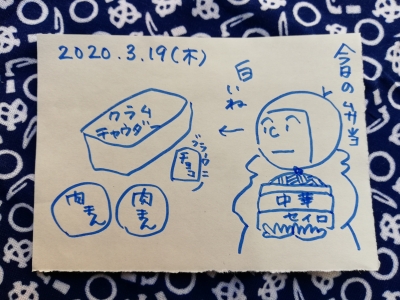 2020.3.19(木)
今日の弁当
白いね
クラム
チャウダー
ブラウニー
チョコ
肉まん
肉まん
中華
セイロ